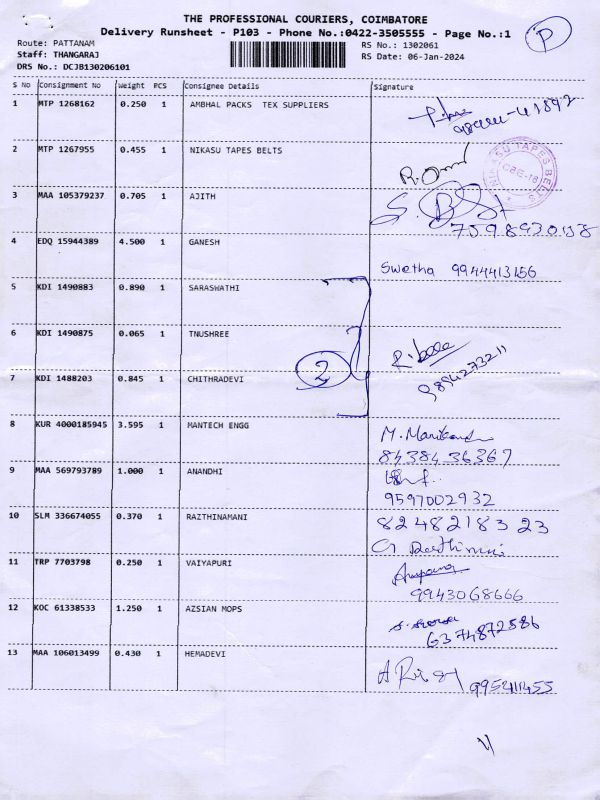 THE PROFESSIONAL COURIERS, COIMBATORE
Delivery Runsheet - P103 - Phone No.:0422-3505555 - Page No.:1
P
Route: PATTANAM
RS No.: 1302061
Staff: THANGARAJ
RS Date: 06-Jan-2024
DRS No.: DCJB130206101
S No Consignment No Weight PCS Consignee Details Signature
1 MTP 1268162 0.250 1 AMBHAL PACKS TEX SUPPLIERS
2 MTP 1267955 0.455 1 NIKASU TAPES BELTS
NIKASU TAPES BELTS CBE-18
3 MAA 105379237 0.705 1 AJITH
4 EDQ 15944389 4.500 1 GANESH
Swetha 9944413156
5 KDI 1490883 0.890 1 SARASWATHI
6 KDI 1490875 0.065 1 TNUSHREE
2
9894273211
7 KDI 1488203 0.845 1 CHITHRADEVI
8 KUR 4000185945 3.595 1 MANTECH ENGG
8438436367
9 MAA 569793789 1.000 1 ANANDHI
9597002932
10 SLM 336674055 0.370 1 RAZTHINAMANI 8248218323
11 TRP 7703798 0.250 1 VAIYAPURI
9943068666
12 KOC 61338533 1.250 1 AZSIAN MOPS
6374872586
13 MAA 106013499 0.430 1 HEMADEVI